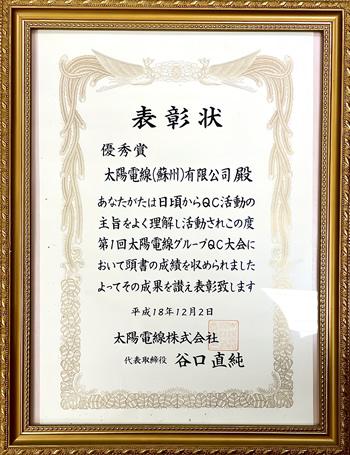 表彰状
優秀賞
太陽電線(蘇州)有限公司 殿
あなたがたは日頃からQC活動の
主旨をよく理解し活動されこの度
第1回太陽電線グループQC大会に
おいて頭書の成績を収められました
よってその成果を讃え表彰致します
平成18年12月2日
太陽電線株式会社
代表取締役 谷口直純